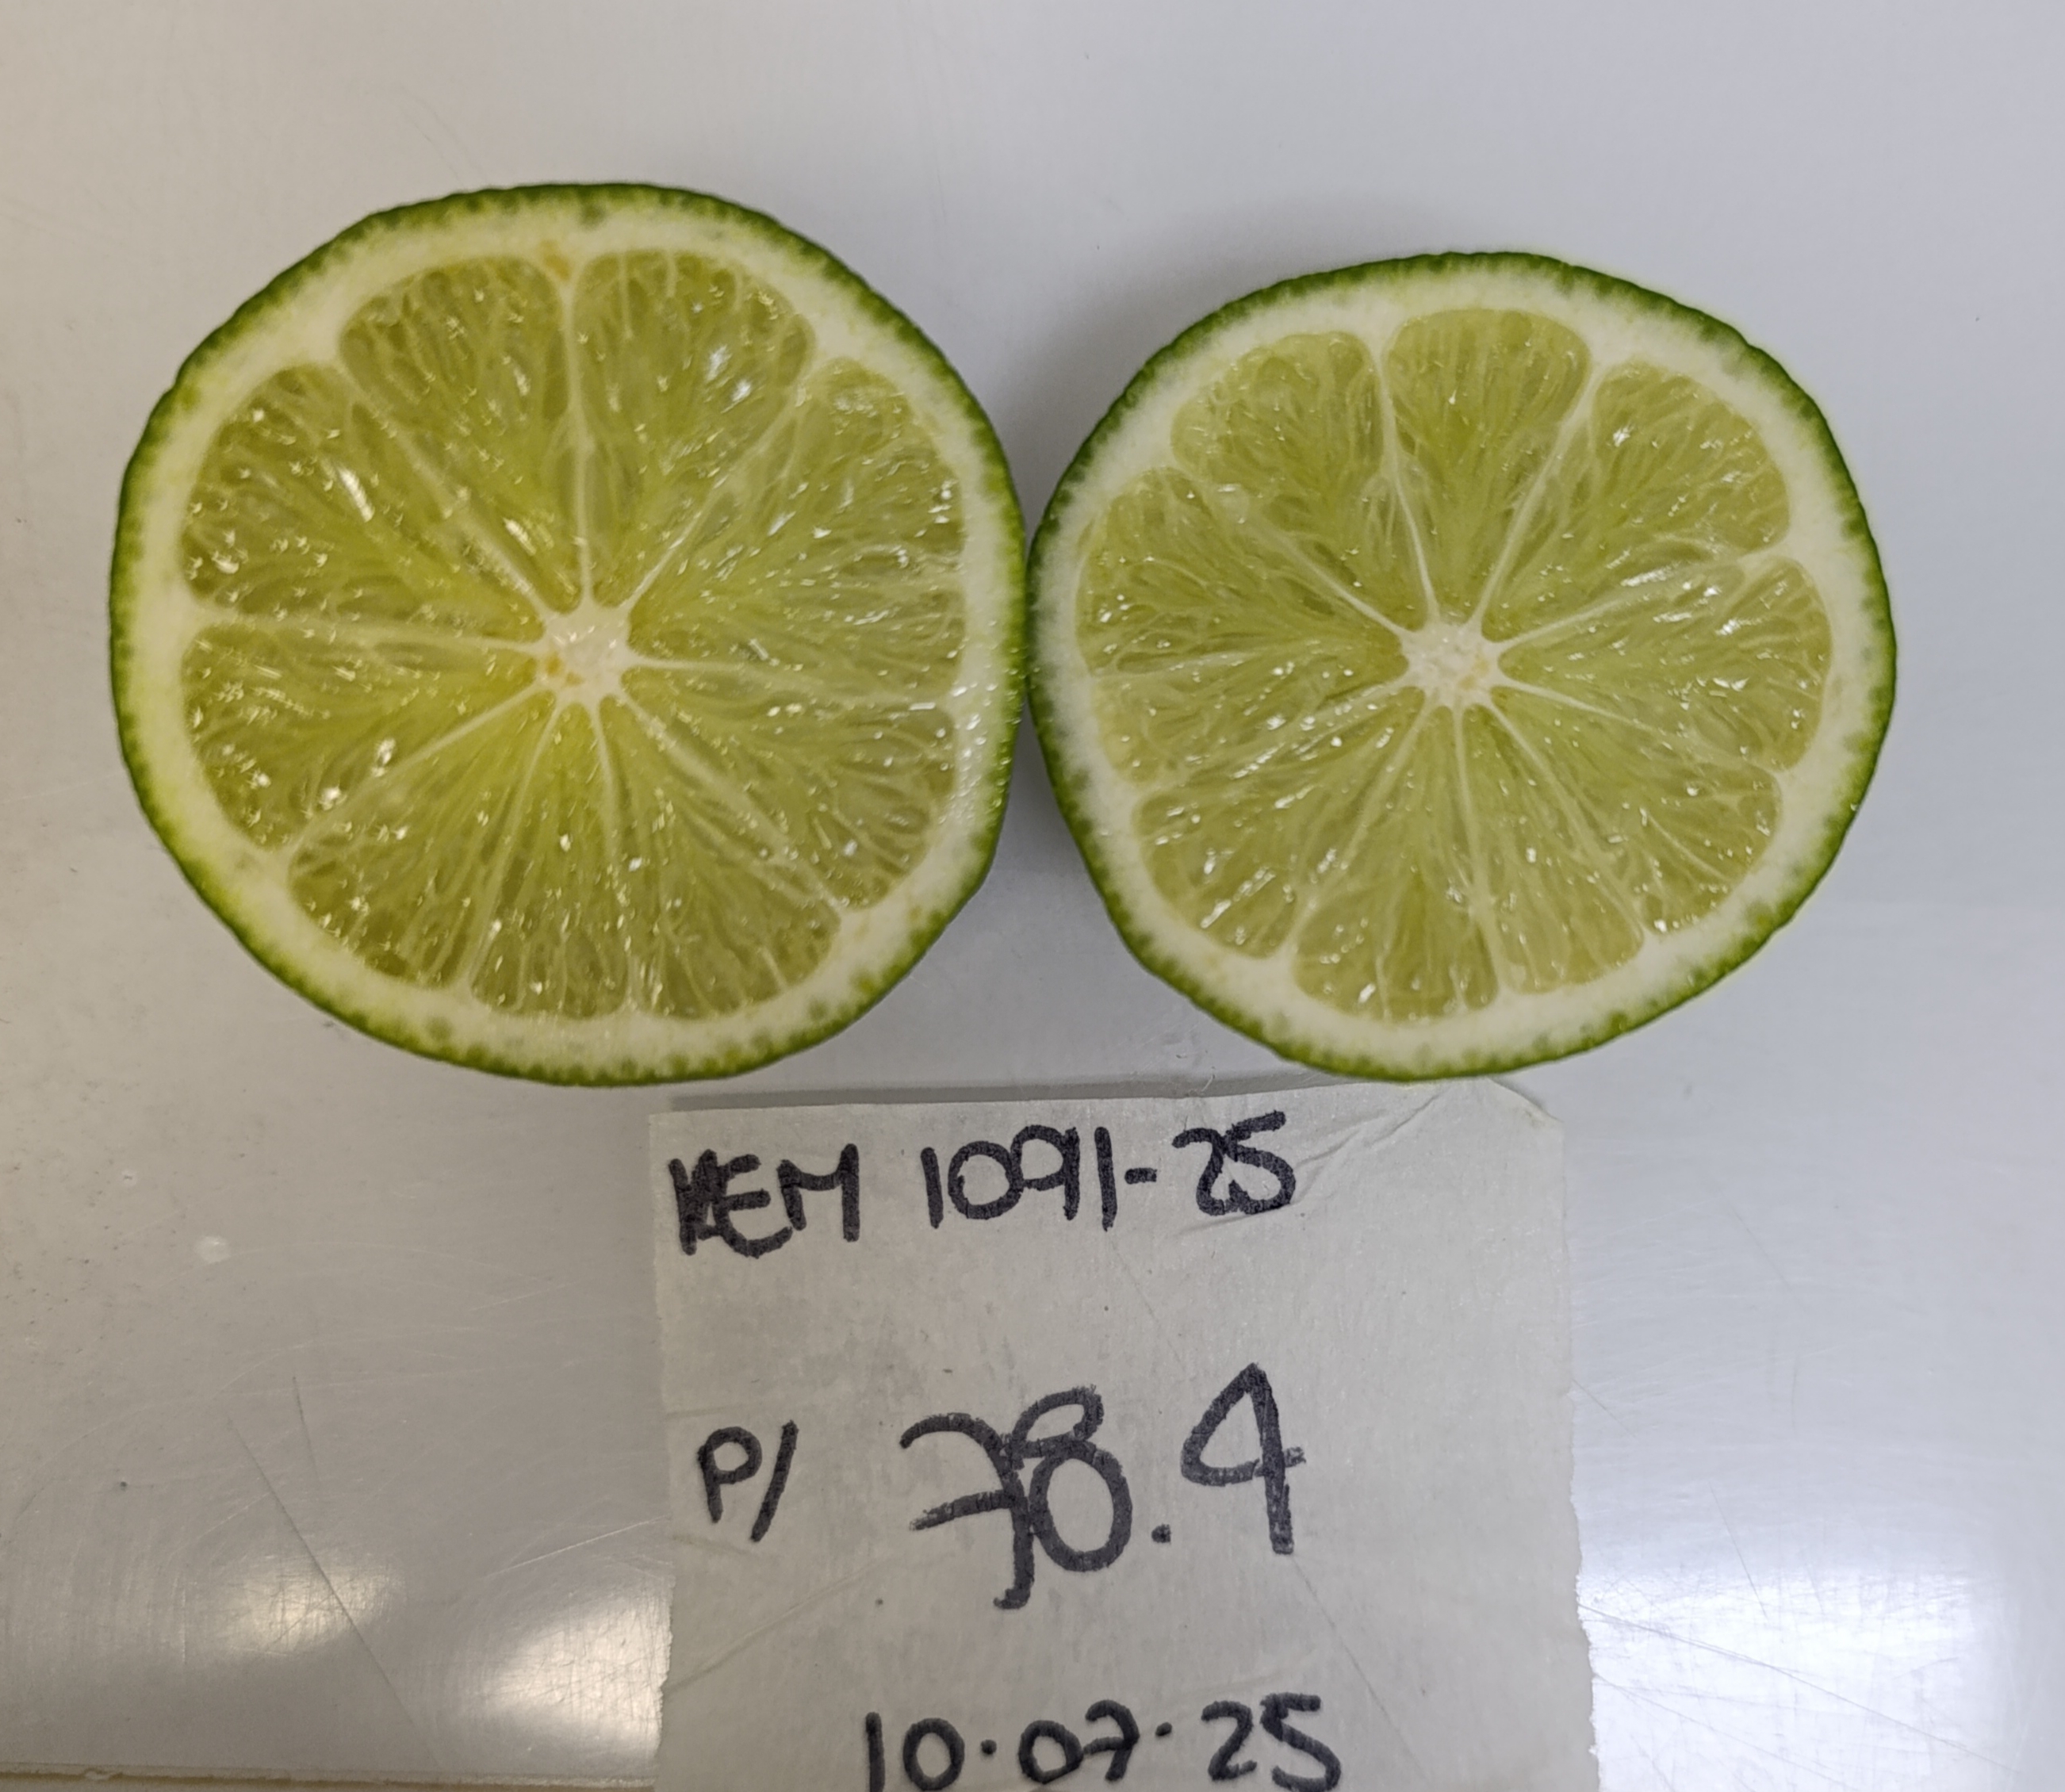 KEM 1091-25
P/ 78.4
10.07.25